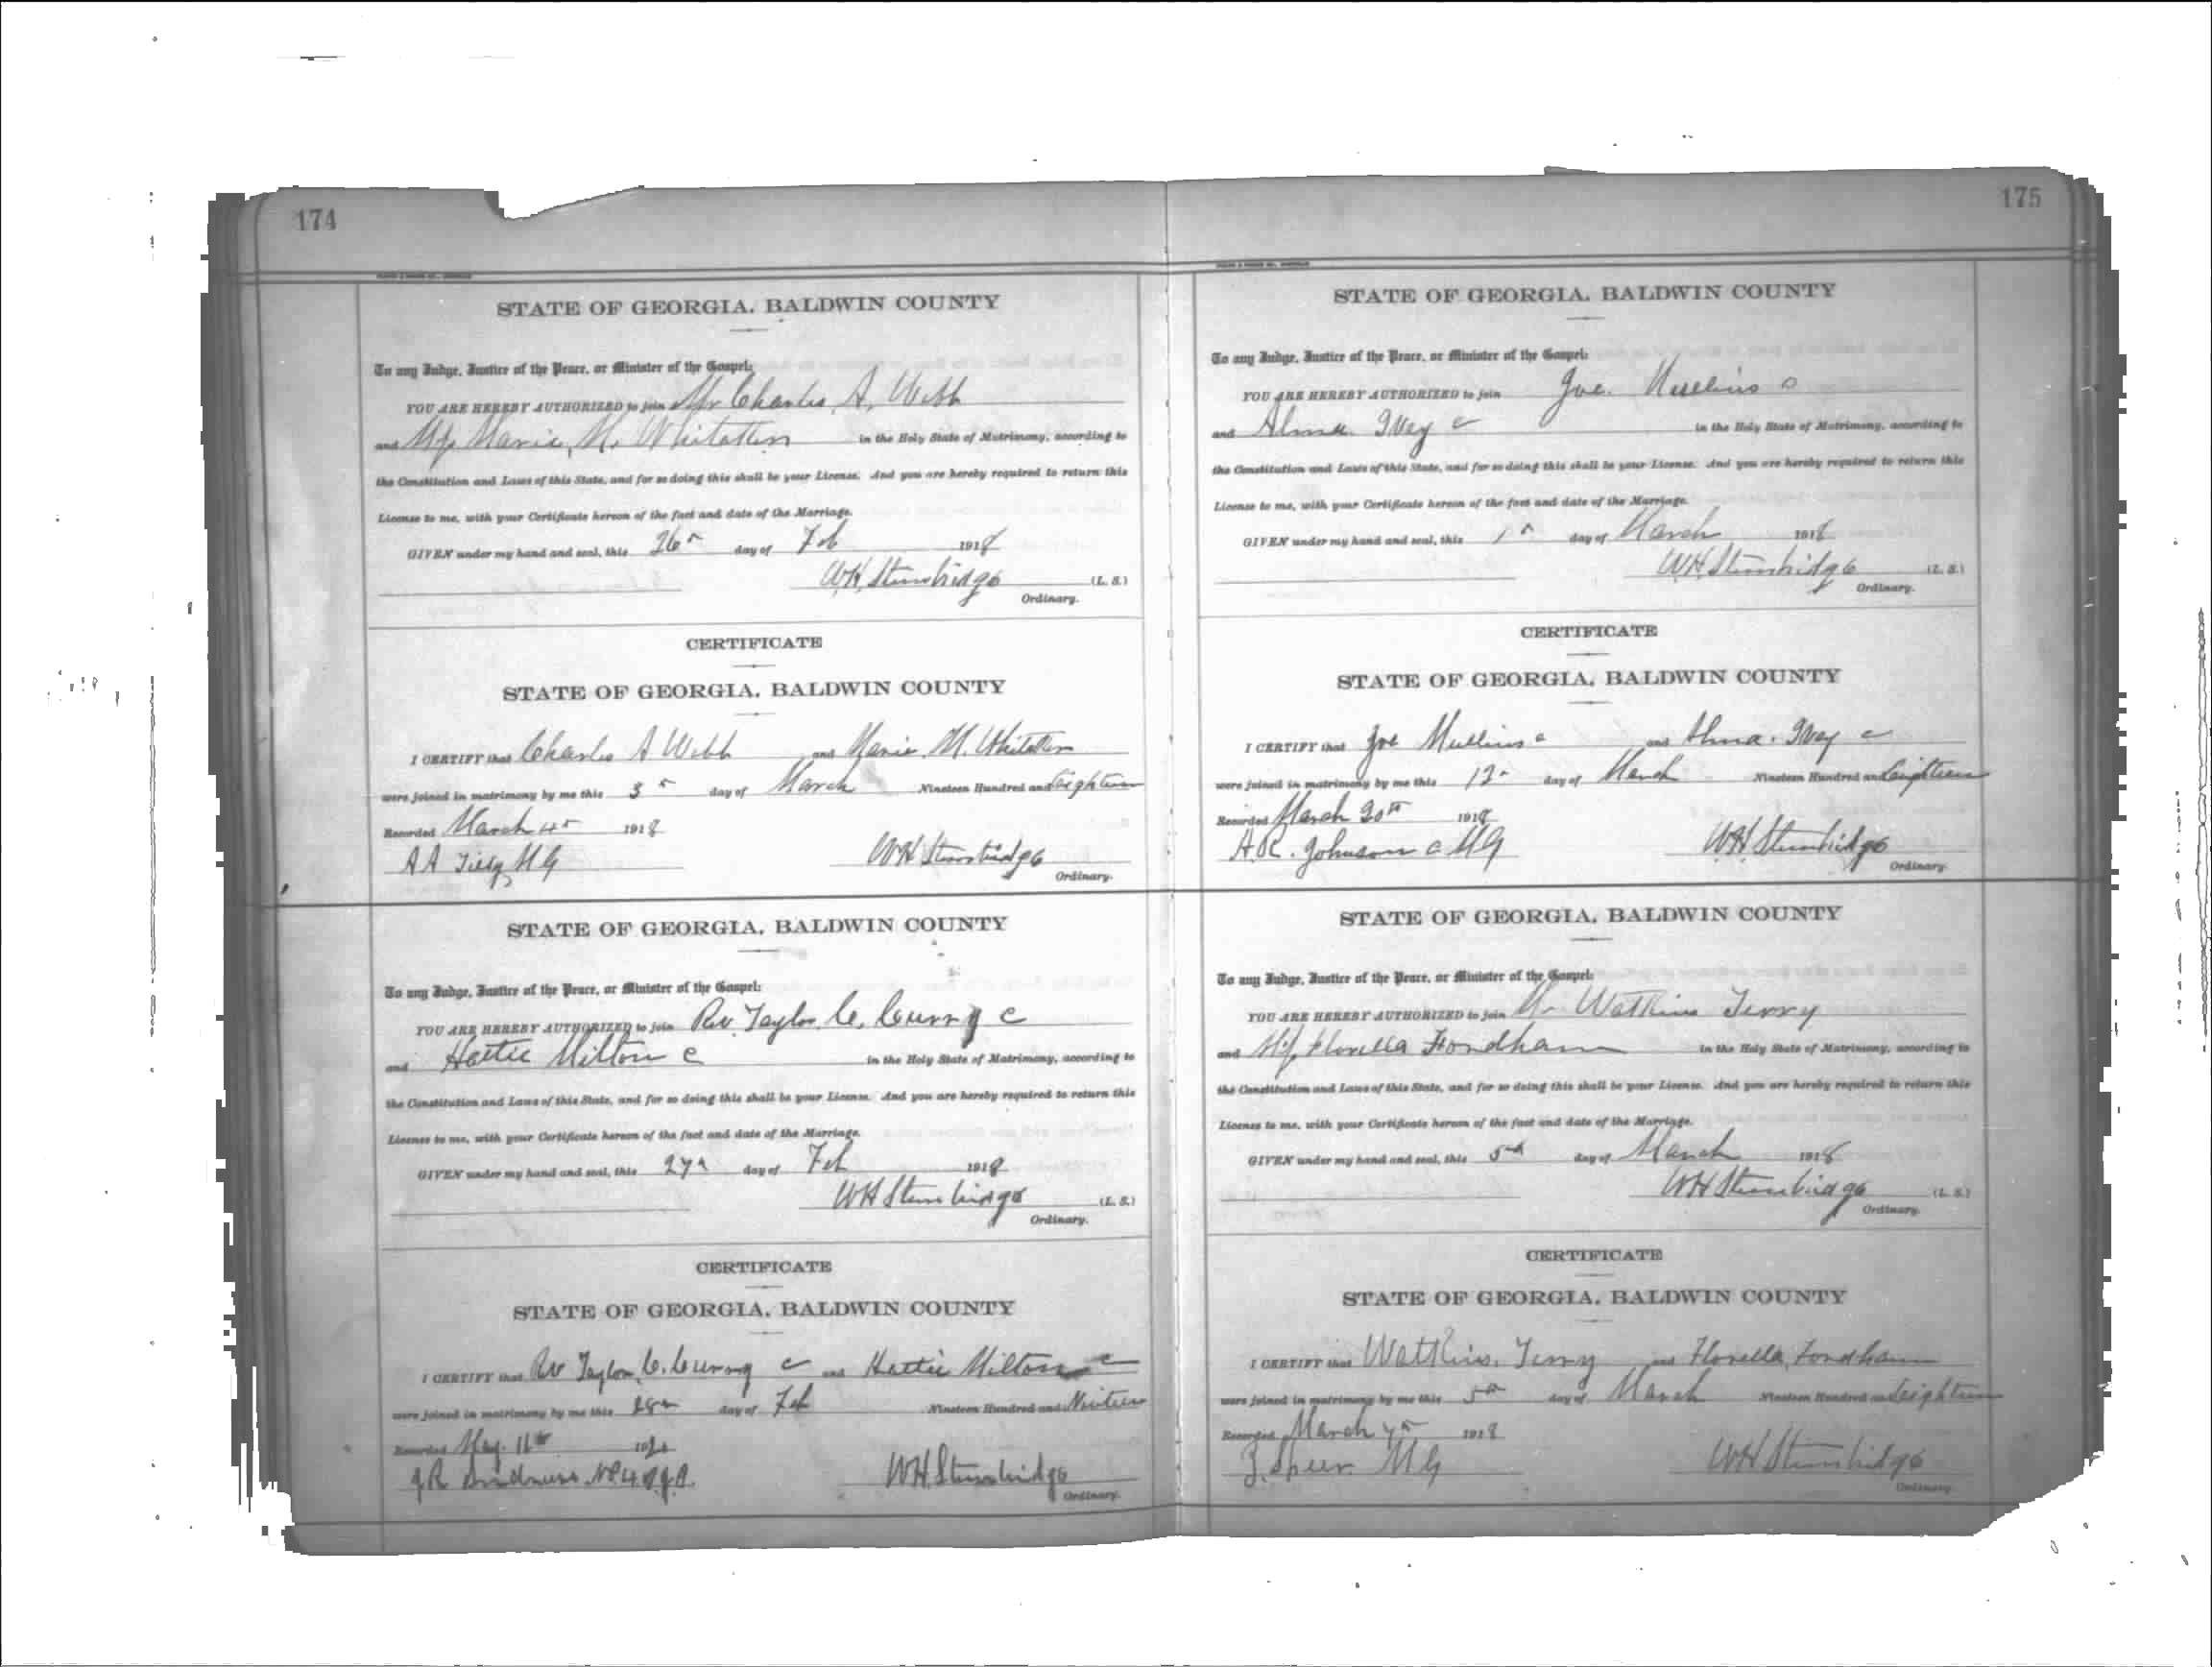 174
STATE OF GEORGIA. BALDWIN COUNTY
To any Judge, Justice of the Peace, or Minister of the Gospel:
YOU ARE HEREBY AUTHORIZED to join Mr Charles, A, Webb
and Marie, M. in the Holy State of Matrimony, according to
the Constitution and Laws of this State, and for so doing this shall be your License. And you are hereby required to return this
License to me, with your Certificate hereon of the fact and date of the Marriage.
GIVEN under my hand and seal, this 26 day of Feb 1918
WH Stembridge (L. S.)
Ordinary.
CERTIFICATE
STATE OF GEORGIA. BALDWIN COUNTY
I CERTIFY that Charles A Webb and Marie. M.
were joined in matrimony by me this 3 day of March Nineteen Hundred and Eighteen
Recorded March 4 1918
A A MG WH Stembridge
Ordinary.
STATE OF GEORGIA. BALDWIN COUNTY
To any Judge, Justice of the Peace, or Minister of the Gospel:
YOU ARE HEREBY AUTHORIZED to join Rev. Taylor, C. Curry c
and Hattie Milton c in the Holy State of Matrimony, according to
the Constitution and Laws of this State, and for so doing this shall be your License. And you are hereby required to return this
License to me, with your Certificate hereon of the fact and date of the Marriage.
GIVEN under my hand and seal, this 27 day of Feb 1918
WH Stembridge (L. S.)
Ordinary.
CERTIFICATE
STATE OF GEORGIA. BALDWIN COUNTY
I CERTIFY that Rev Taylor, C. Curry c and Hattie Milton c
were joined in matrimony by me this 28 day of Feb Nineteen Hundred and
Recorded May. 11
J R Andrews WH Stembridge
Ordinary.
175
STATE OF GEORGIA. BALDWIN COUNTY
To any Judge, Justice of the Peace, or Minister of the Gospel:
YOU ARE HEREBY AUTHORIZED to join Joe. Mullins c
and Alma. Ivey c in the Holy State of Matrimony, according to
the Constitution and Laws of this State, and for so doing this shall be your License. And you are hereby required to return this
License to me, with your Certificate hereon of the fact and date of the Marriage.
GIVEN under my hand and seal, this 1 day of March 1918
WH Stembridge (L. S.)
Ordinary.
CERTIFICATE
STATE OF GEORGIA. BALDWIN COUNTY
I CERTIFY that Joe Mullins c and Alma. Ivey c
were joined in matrimony by me this day of March Nineteen Hundred and Eighteen
Recorded March 1918
H.R. Johnson c MG WH Stembridge
Ordinary.
STATE OF GEORGIA. BALDWIN COUNTY
To any Judge, Justice of the Peace, or Minister of the Gospel:
YOU ARE HEREBY AUTHORIZED to join Mr Watkins Terry
and Florella Fondham in the Holy State of Matrimony, according to
the Constitution and Laws of this State, and for so doing this shall be your License. And you are hereby required to return this
License to me, with your Certificate hereon of the fact and date of the Marriage.
GIVEN under my hand and seal, this 5th day of March 1918
WH Stembridge (L. S.)
Ordinary.
CERTIFICATE
STATE OF GEORGIA. BALDWIN COUNTY
I CERTIFY that Watkins. Terry and Florella, Fondham
were joined in matrimony by me this 5th day of March Nineteen Hundred and Eighteen
Recorded March 1918
Z. Speer. MG WH Stembridge
Ordinary.